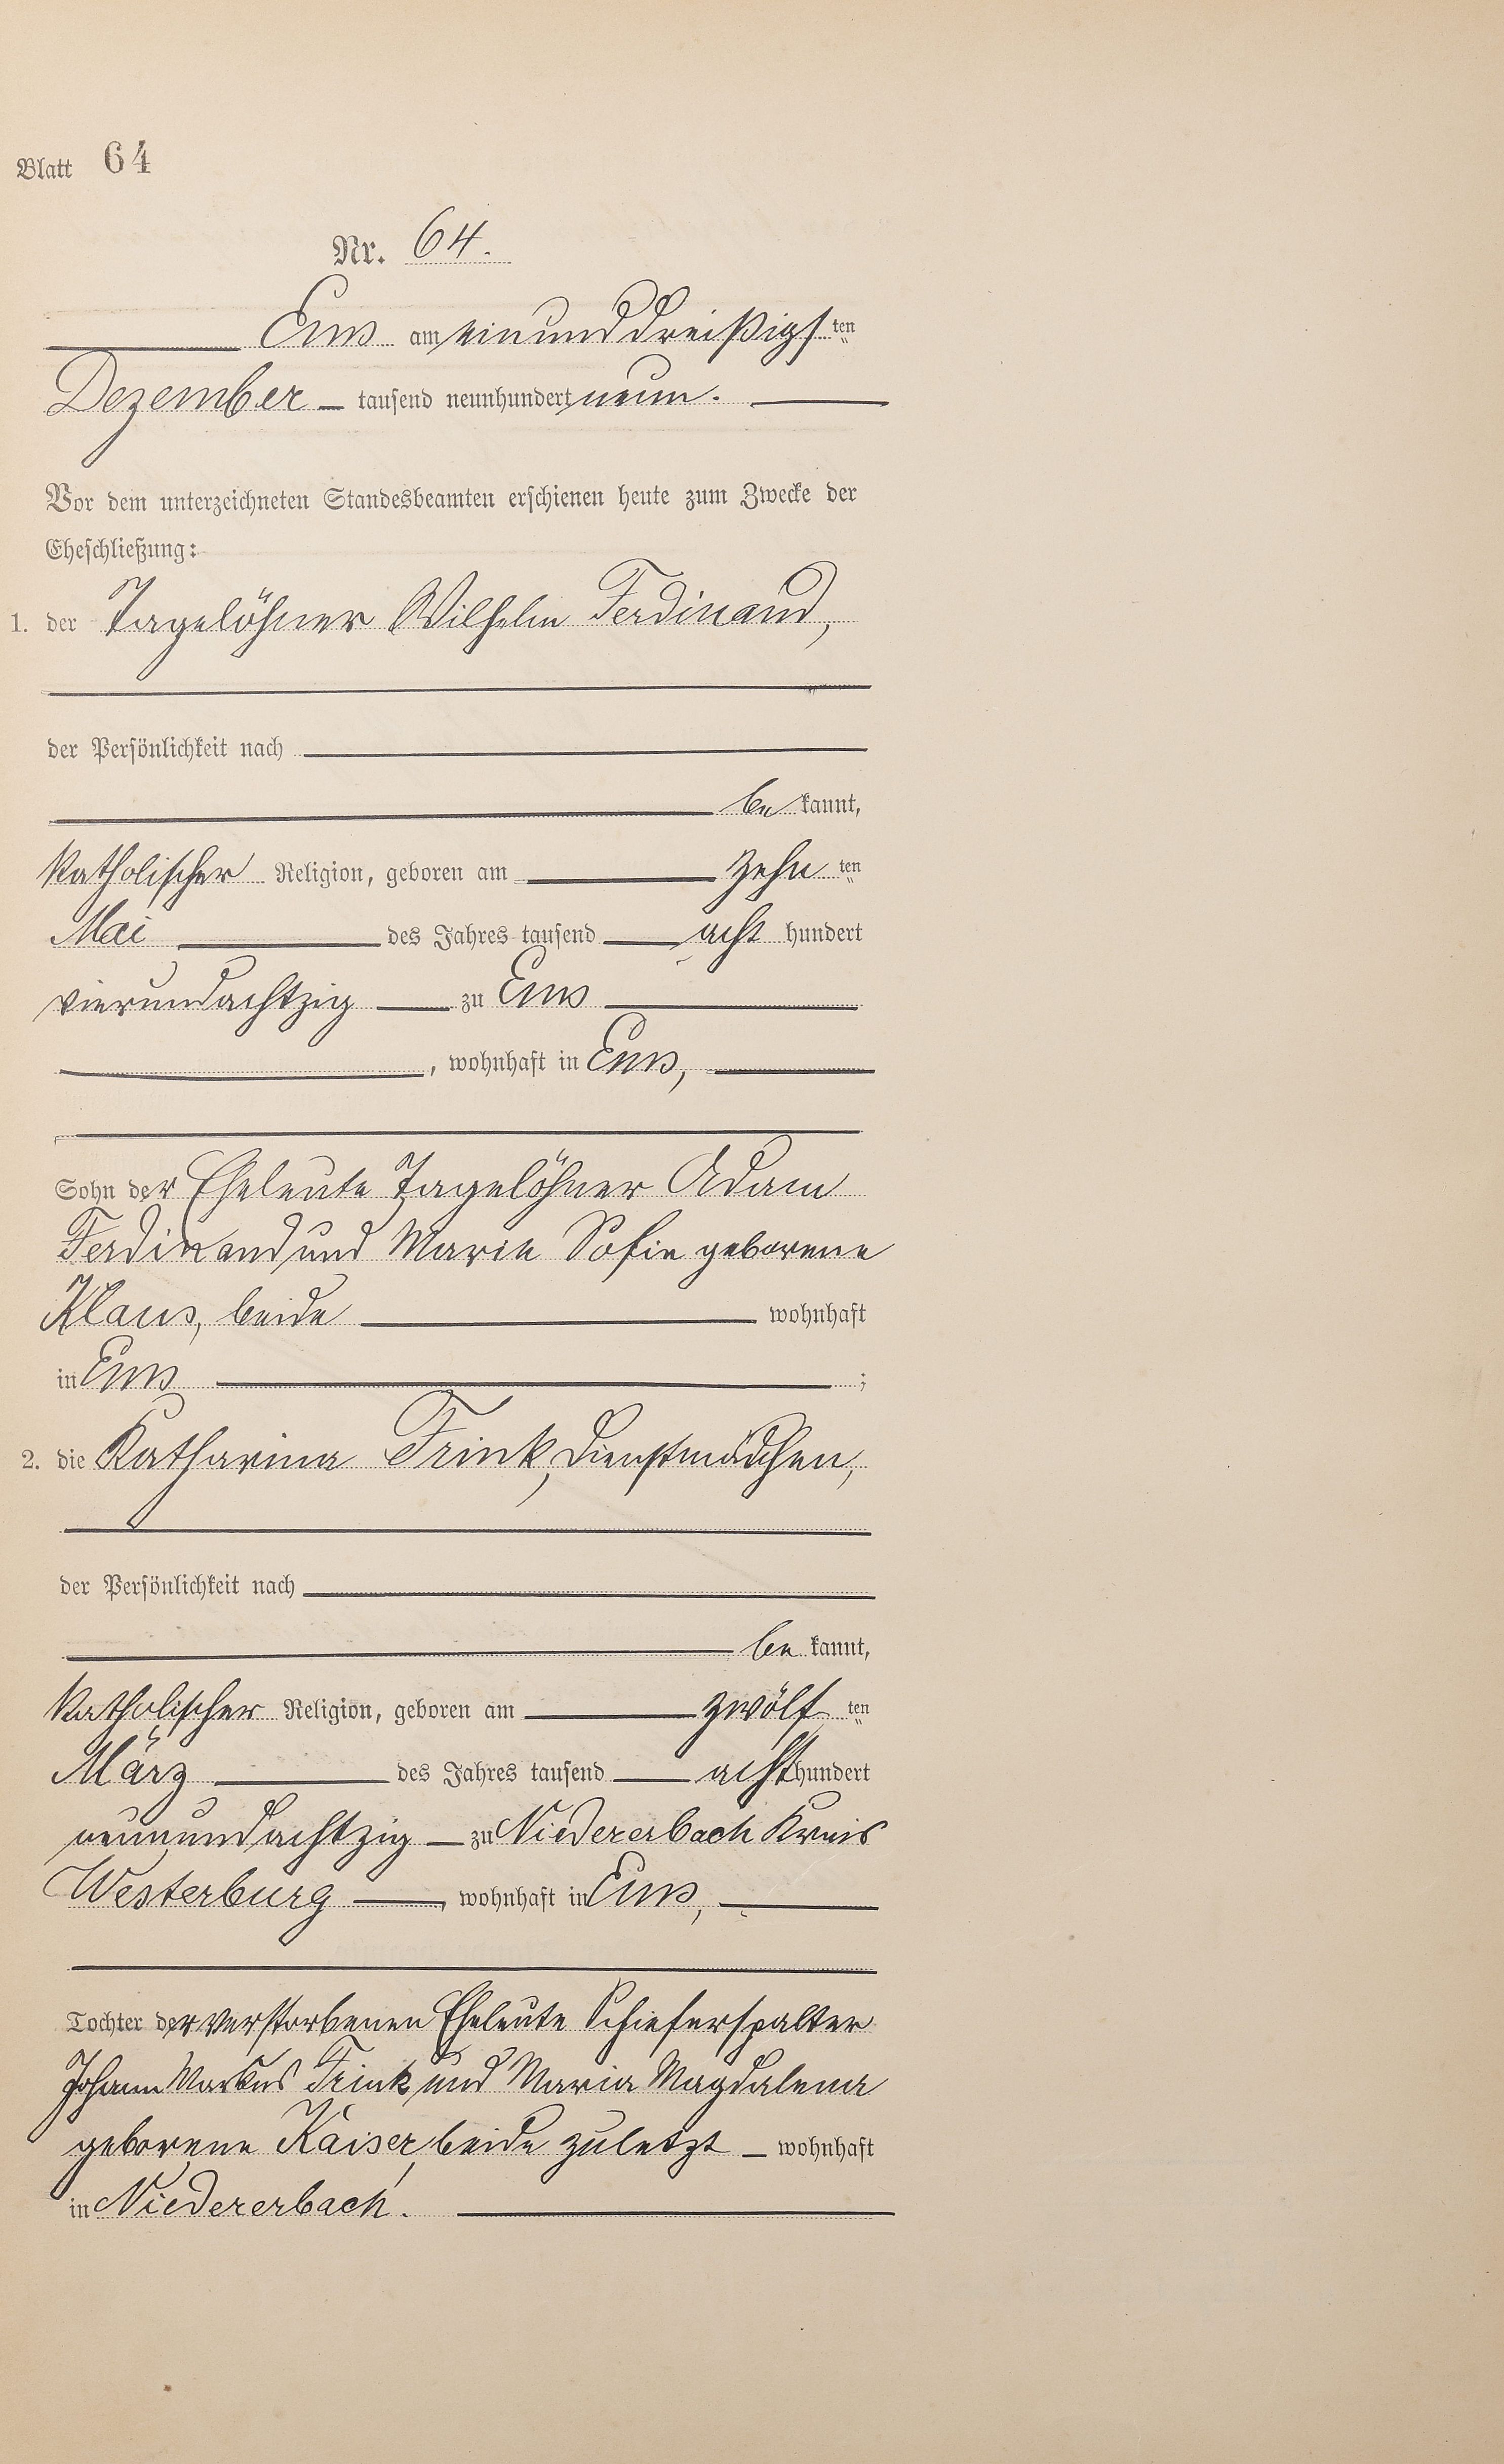 Blatt 64
Nr. 64.
Ems am einunddreißigsten
Dezember tausend neunhundert neun.
Vor dem unterzeichneten Standesbeamten erschienen heute zum Zwecke der
Eheschließung:
1. der Tagelöhner Wilhelm Ferdinand,
der Persönlichkeit nach
bekannt,
katholischer Religion, geboren am zehnten
Mai des Jahres tausend achthundert
vierundachtzig zu Ems
, wohnhaft in Ems,
Sohn der Eheleute Tagelöhner Adam
Ferdinand und Marie Sofie geborene
Klaus, beide wohnhaft
in Ems ;
2. die Katharina Frink, Dienstmädchen,
der Persönlichkeit nach
bekannt,
katholischer Religion, geboren am zwölften
März des Jahres tausend achthundert
neunundachtzig zu Niedererbach Kreis
Westerburg, wohnhaft in Ems,
Tochter der verstorbenen Eheleute Schieferspalter
Johann Markus Frink und Maria Magdalena
geborene Kaiser, beide zuletzt wohnhaft
in Niedererbach.